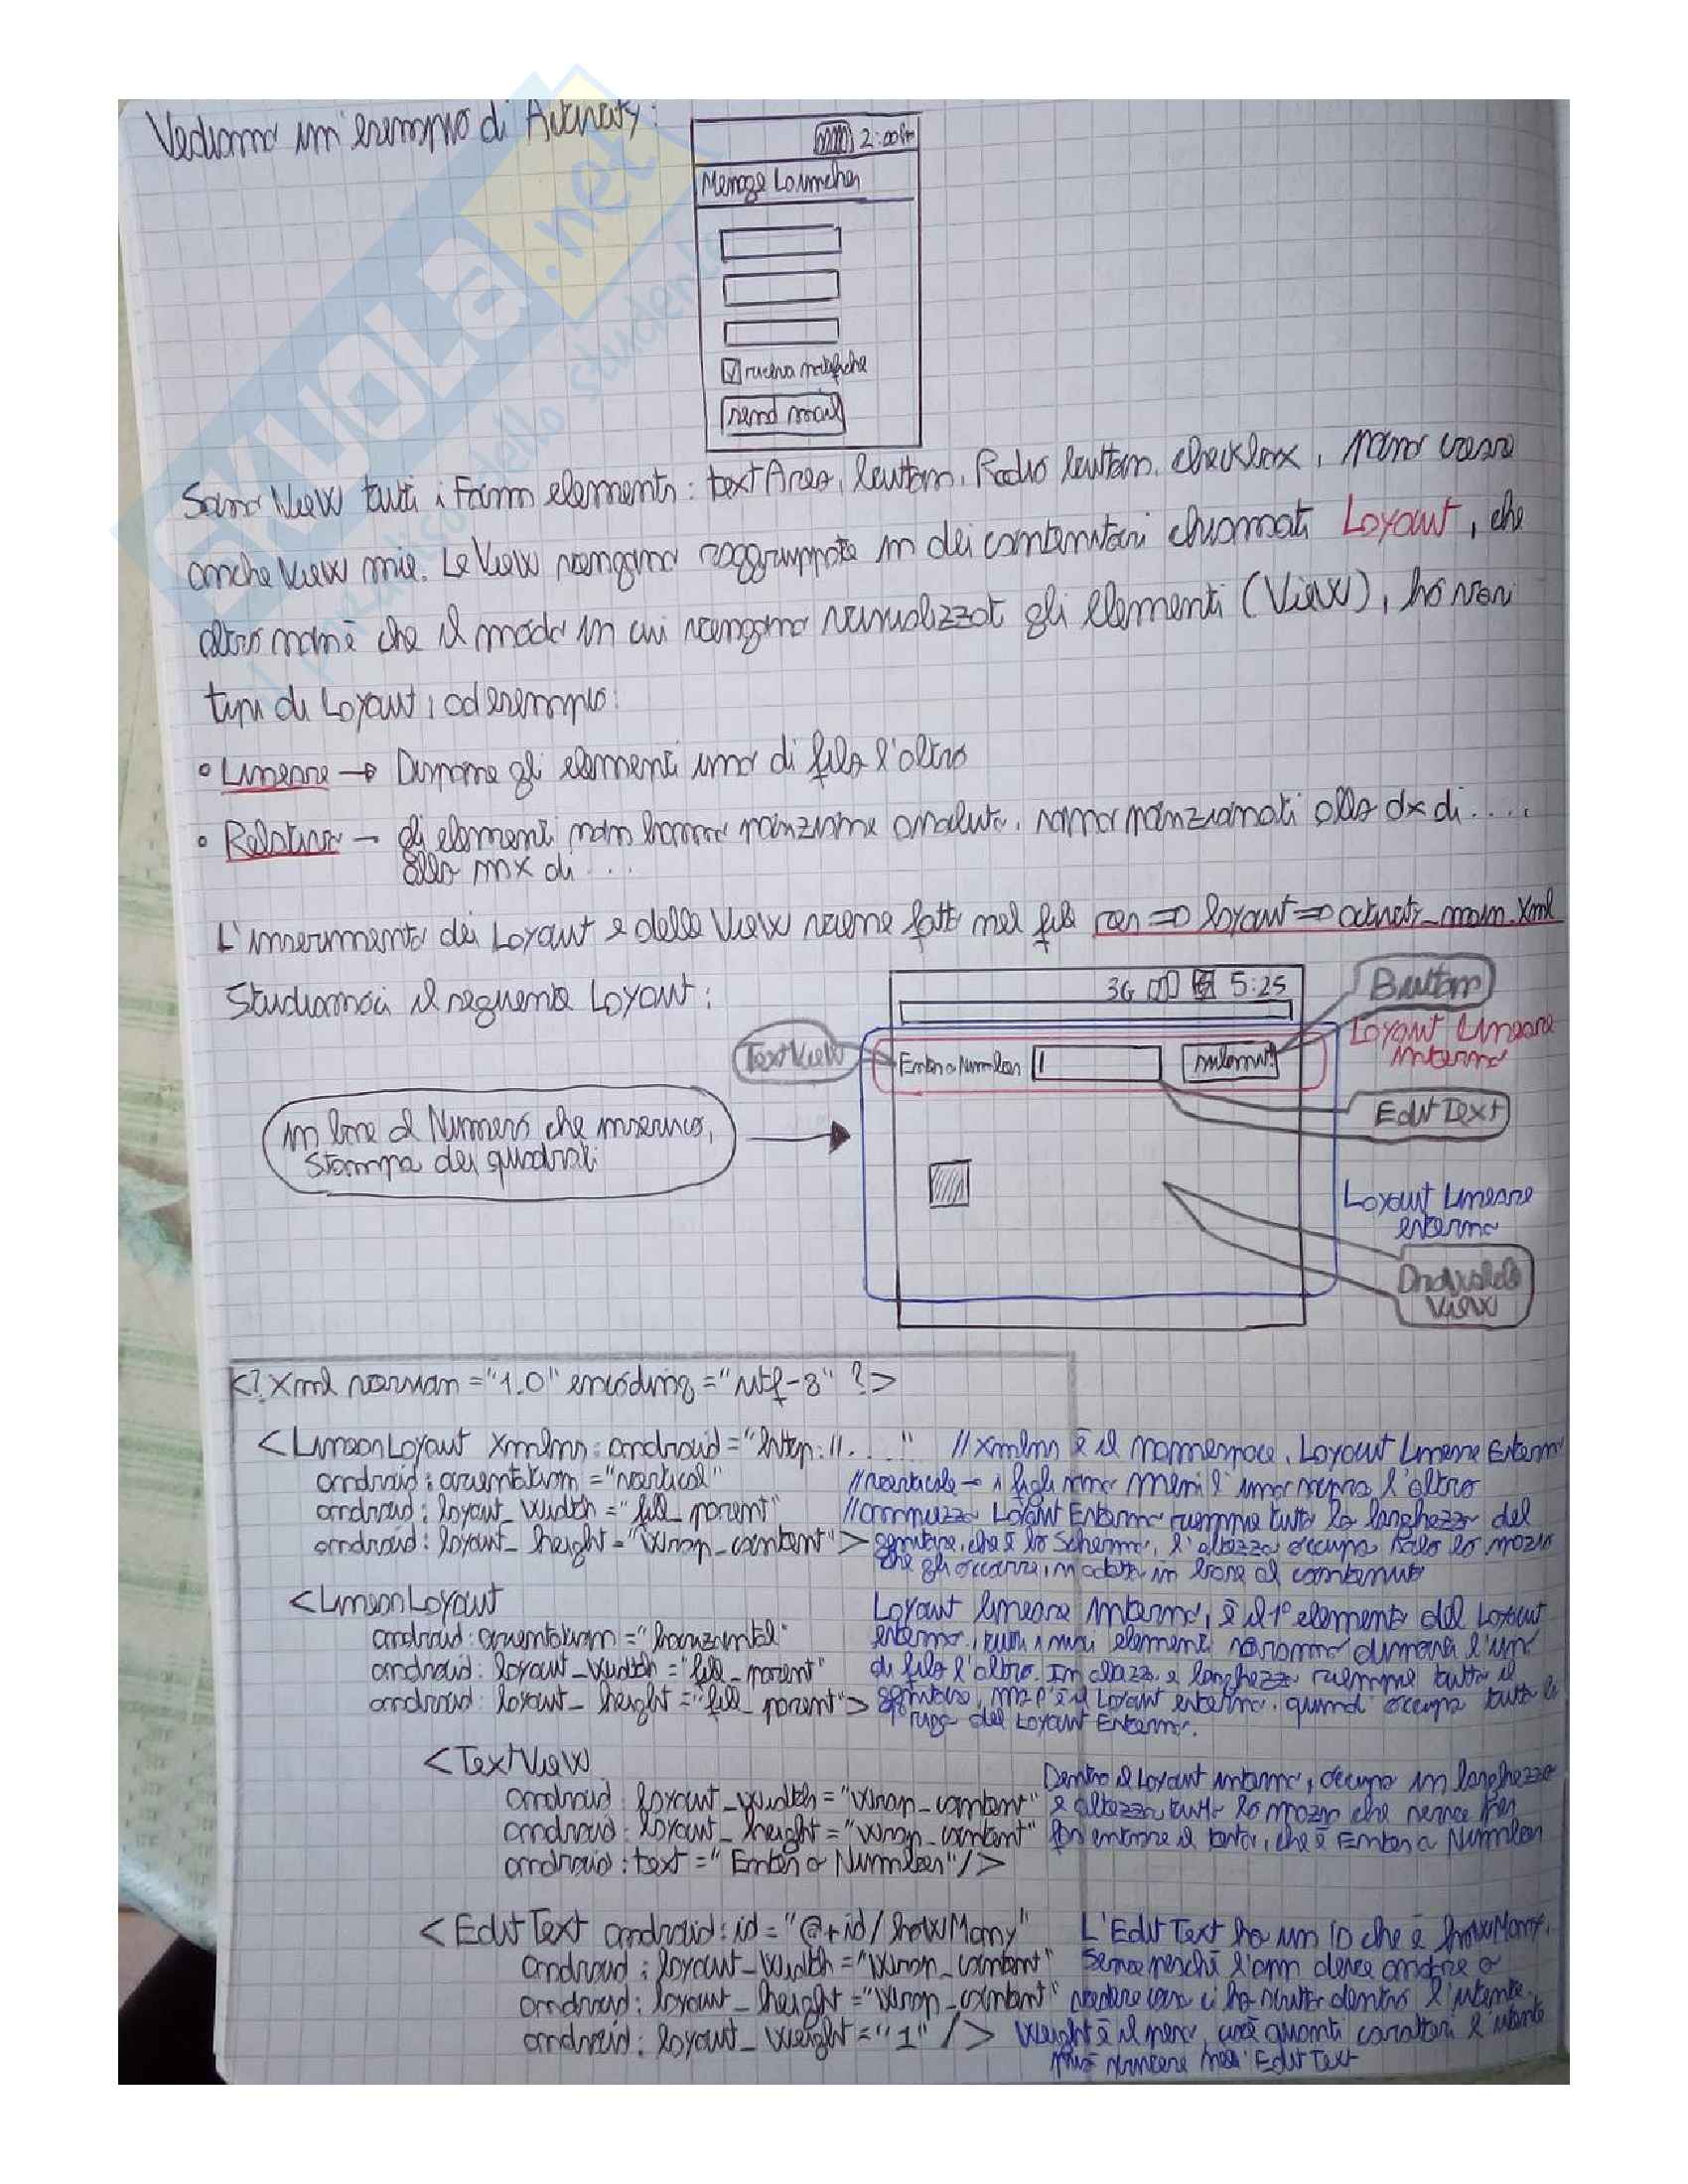 Vediamo un'esempio di Activity:
2:00 Pm
Message Launcher
ricevi notifiche
send mail
Sono View tutti i Form elements: textArea, button, Radio button, checkbox, posso creare
anche View mie. Le View vengono raggruppate in dei contenitori chiamati Layout, che
altro non è che il modo in cui vengono visualizzati gli elementi (View), ho vari
tipi di Layout, ad esempio:
• Lineare → Dispone gli elementi uno di fila l'altro
• Relativo → gli elementi non hanno posizione assoluta, sono posizionati alla dx di ....
alla sx di ...
L'inserimento dei Layout e delle View viene fatto nel file res ⇒ layout ⇒ activity_main.xml
Studiamoci il seguente Layout:
3G 5:25
Button
Layout Lineare
interno
TextView
Enter a Number
1
submit
Edit Text
in base al Numero che inserisco,
stampa dei quadrati
Layout Lineare
esterno
Drawable
View
<?Xml version="1.0" encoding="utf-8" ?>
<LinearLayout xmlns:android="http://....." //xmlns è il namespace. Layout Lineare Esterno
android:orientation="vertical" //verticale → i figli sono messi l'uno sopra l'altro
android:layout_width="fill_parent" //ampiezza Layout Esterno riempie tutta la larghezza del
android:layout_height="wrap_content"> genitore, che è lo schermo, l'altezza occupa solo lo spazio
che gli occorre, si adatta in base al contenuto
<LinearLayout Layout lineare interno, è il 1° elemento del Layout
android:orientation="horizontal" esterno, tutti i suoi elementi saranno disposti l'uno
android:layout_width="fill_parent" di fila l'altro. In altezza e larghezza riempie tutto il
android:layout_height="fill_parent"> genitore, che è il Layout esterno. quindi occupa tutta la
riga del Layout Esterno.
<TextView Dentro il Layout interno, occupa in larghezza
android:layout_width="wrap_content" e altezza tutto lo spazio che serve per
android:layout_height="wrap_content" far entrare il testo, che è Enter a Number
android:text="Enter a Number"/>
<EditText android:id="@+id/howMany" L'EditText ha un ID che è howMany.
android:layout_width="wrap_content" Serve perchè l'app deve andare a
android:layout_height="wrap_content" vedere cosa ci ha scritto dentro l'utente.
android:layout_weight="1" /> Weight è il peso, cioè quanti caratteri l'utente
può scrivere nell'EditText
SKUOLA.net
il paradiso dello studente